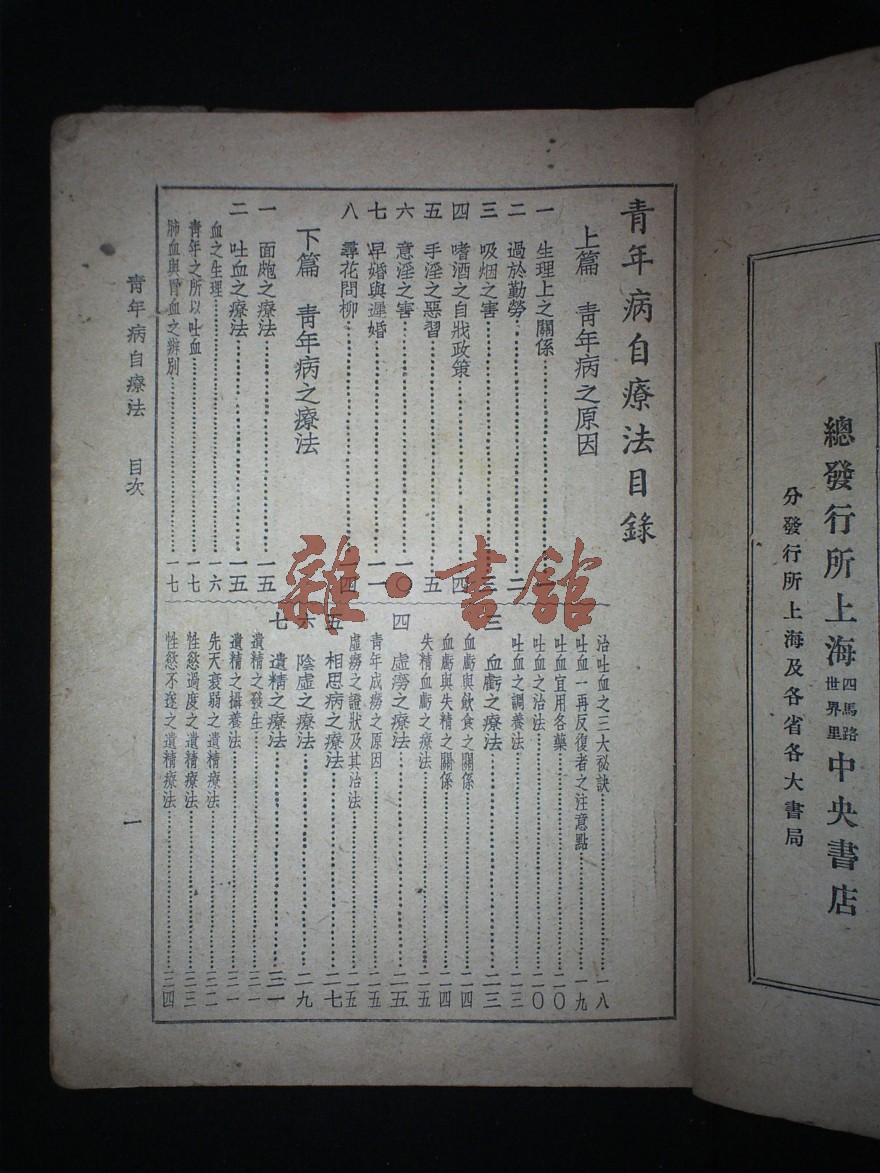 總發行所上海四馬路世界里中央書店
分發行所上海及各省各大書局
青年病自療法目錄
上篇 青年病之原因
一 生理上之關係
二 過於勤勞……二
三 吸烟之害……三
四 嗜酒之自戕政策……四
五 手淫之惡習……五
六 意淫之害……一〇
七 早婚與遲婚……一一
八 尋花問柳……一四
下篇 青年病之療法
一 面皰之療法……一五
二 吐血之療法……一五
血之生理……一六
青年之所以吐血……一七
肺血與胃血之辨別……一七
治吐血之三大祕訣……一八
吐血一再反復者之注意點……一九
吐血宜用各藥……二〇
吐血之治法……二〇
吐血之調養法……二三
三 血虧之療法……二三
血虧與飲食之關係……二四
血虧與失精之關係……二四
失精血虧之療法……二五
四 虛癆之療法……二五
青年成癆之原因……二五
虛癆之證狀及其治法……二五
五 相思病之療法……二七
六 陰虛之療法……二九
七 遺精之療法……三一
遺精之發生……三一
遺精之攝養法……三一
先天衰弱之遺精療法……三二
性慾過度之遺精療法……三三
性慾不遂之遺精療法……三四
青年病自療法 目次
一
雜·書館